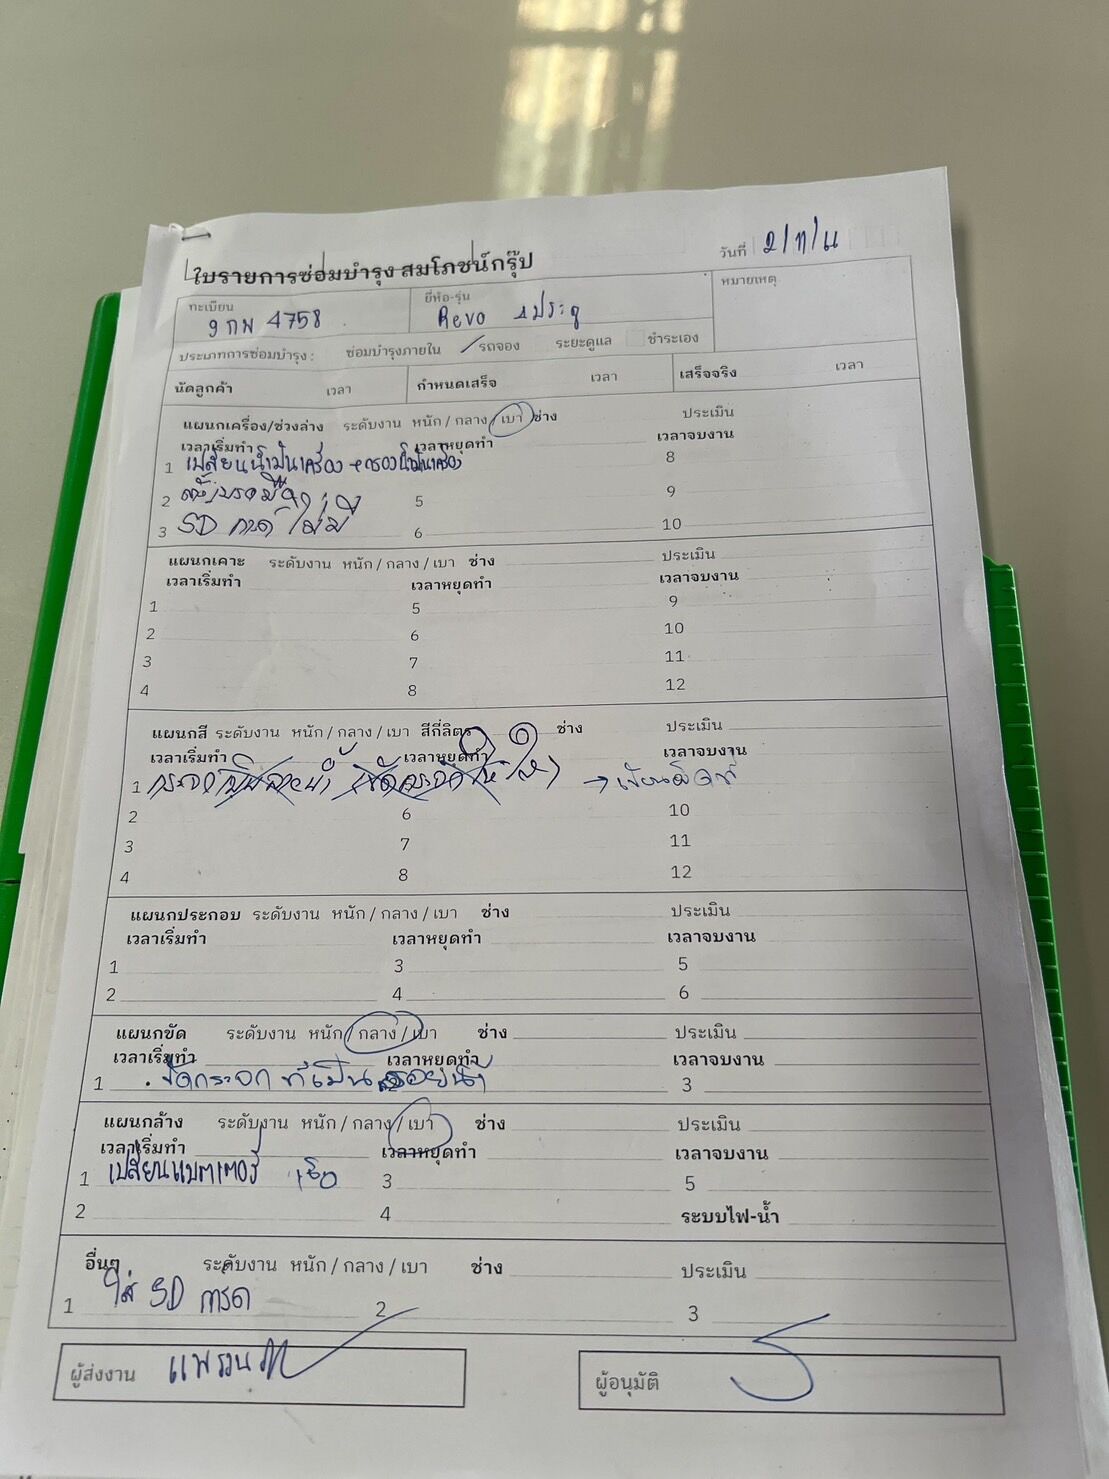 ใบรายการซ่อมบำรุง สมโภชน์กรุ๊ป
วันที่
ทะเบียน 9 กพ 4758
ยี่ห้อ-รุ่น Revo 4ประตู
หมายเหตุ
ประเภทการซ่อมบำรุง : ซ่อมบำรุงภายใน / รถจอง ระยะดูแล ชำระเอง
นัดลูกค้า เวลา กำหนดเสร็จ เวลา เสร็จจริง เวลา
แผนกเครื่อง/ช่วงล่าง ระดับงาน หนัก / กลาง / เบา ช่าง ประเมิน
เวลาเริ่มทำ เวลาหยุดทำ เวลาจบงาน
1 เปลี่ยนน้ำมันเครื่อง + กรองน้ำมันเครื่อง 8
2 ตั้งเบรคมือ 5 9
3 SD การ์ด ไม่มี 6 10
แผนกเคาะ ระดับงาน หนัก / กลาง / เบา ช่าง ประเมิน
เวลาเริ่มทำ เวลาหยุดทำ เวลาจบงาน
1 5 9
2 6 10
3 7 11
4 8 12
แผนกสี ระดับงาน หนัก / กลาง / เบา สีกี่ลิตร ช่าง ประเมิน
เวลาเริ่มทำ เวลาหยุดทำ เวลาจบงาน
1 → เขียนผิดที่
2 6 10
3 7 11
4 8 12
แผนกประกอบ ระดับงาน หนัก / กลาง / เบา ช่าง ประเมิน
เวลาเริ่มทำ เวลาหยุดทำ เวลาจบงาน
1 3 5
2 4 6
แผนกขัด ระดับงาน หนัก / กลาง / เบา ช่าง ประเมิน
เวลาเริ่มทำ เวลาหยุดทำ เวลาจบงาน
1 ขัดกระจก ที่เป็นรอยน้ำ 3
แผนกล้าง ระดับงาน หนัก / กลาง / เบา ช่าง ประเมิน
เวลาเริ่มทำ เวลาหยุดทำ เวลาจบงาน
1 เปลี่ยนแบตเตอรี่ 3 5
2 4 ระบบไฟ-น้ำ
อื่นๆ ระดับงาน หนัก / กลาง / เบา ช่าง ประเมิน
1 ใส่ SD การ์ด 2 3
ผู้ส่งงาน
ผู้อนุมัติ